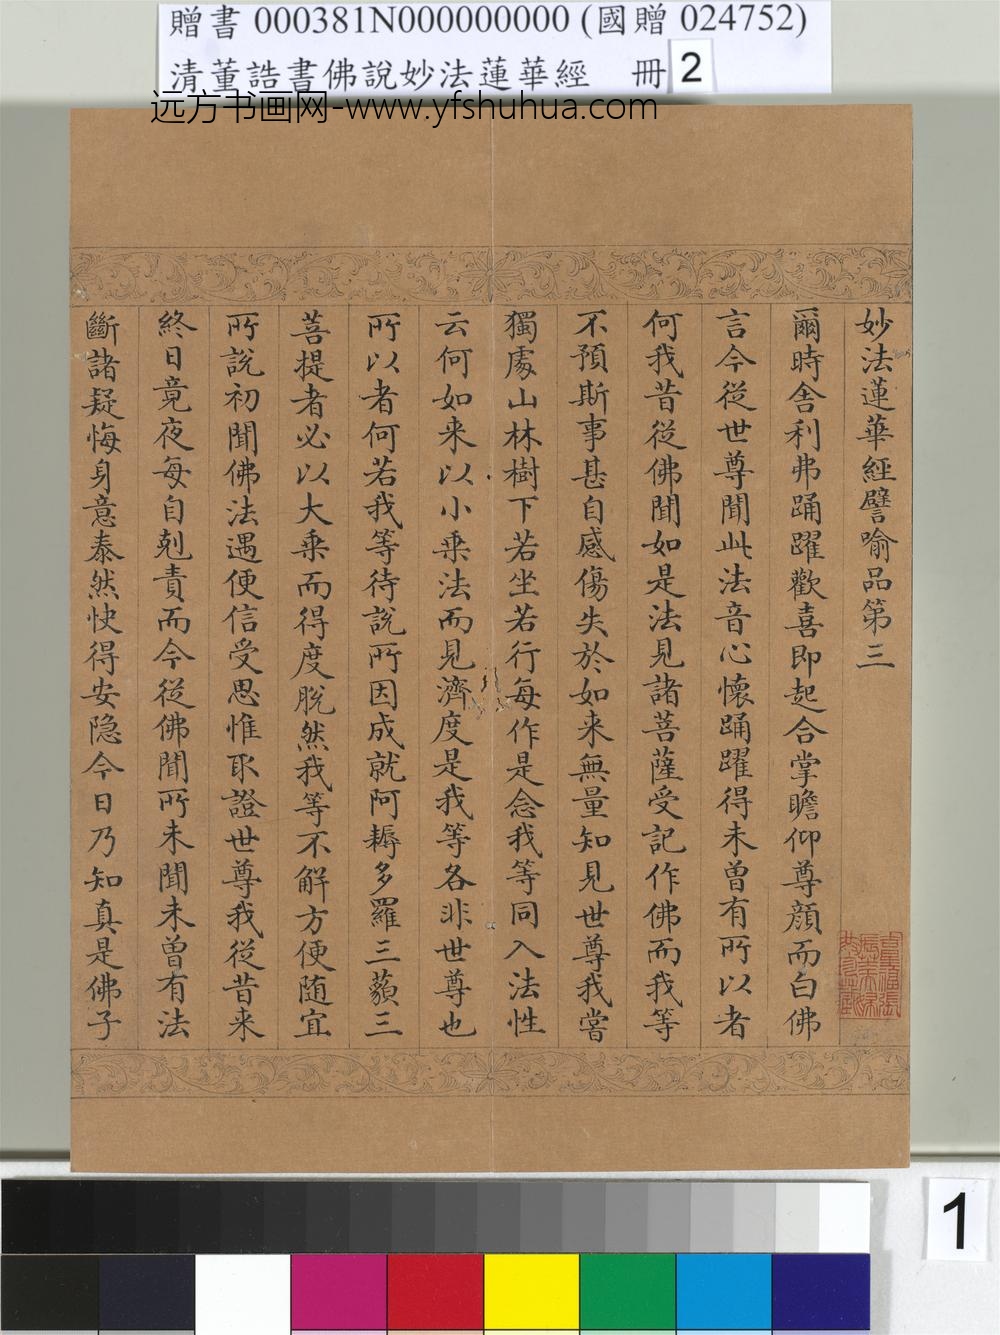 贈書 000381N000000000 (國贈 024752)
清董誥書佛說妙法蓮華經 冊 2
远方书画网-www.yfshuhua.com
妙法蓮華經譬喻品第三
爾時舍利弗踊躍歡喜即起合掌瞻仰尊顔而白佛
言今從世尊聞此法音心懷踊躍得未曾有所以者
何我昔從佛聞如是法見諸菩薩受記作佛而我等
不預斯事甚自感傷失於如来無量知見世尊我嘗
獨處山林樹下若坐若行每作是念我等同入法性
云何如来以小乗法而見濟度是我等咎非世尊也
所以者何若我等待說所因成就阿耨多羅三藐三
菩提者必以大乗而得度脫然我等不解方便随宜
所說初聞佛法遇便信受思惟取證世尊我從昔来
終日竟夜每自剋責而今從佛聞所未聞未曾有法
斷諸疑悔身意泰然快得安隐今日乃知真是佛子
1